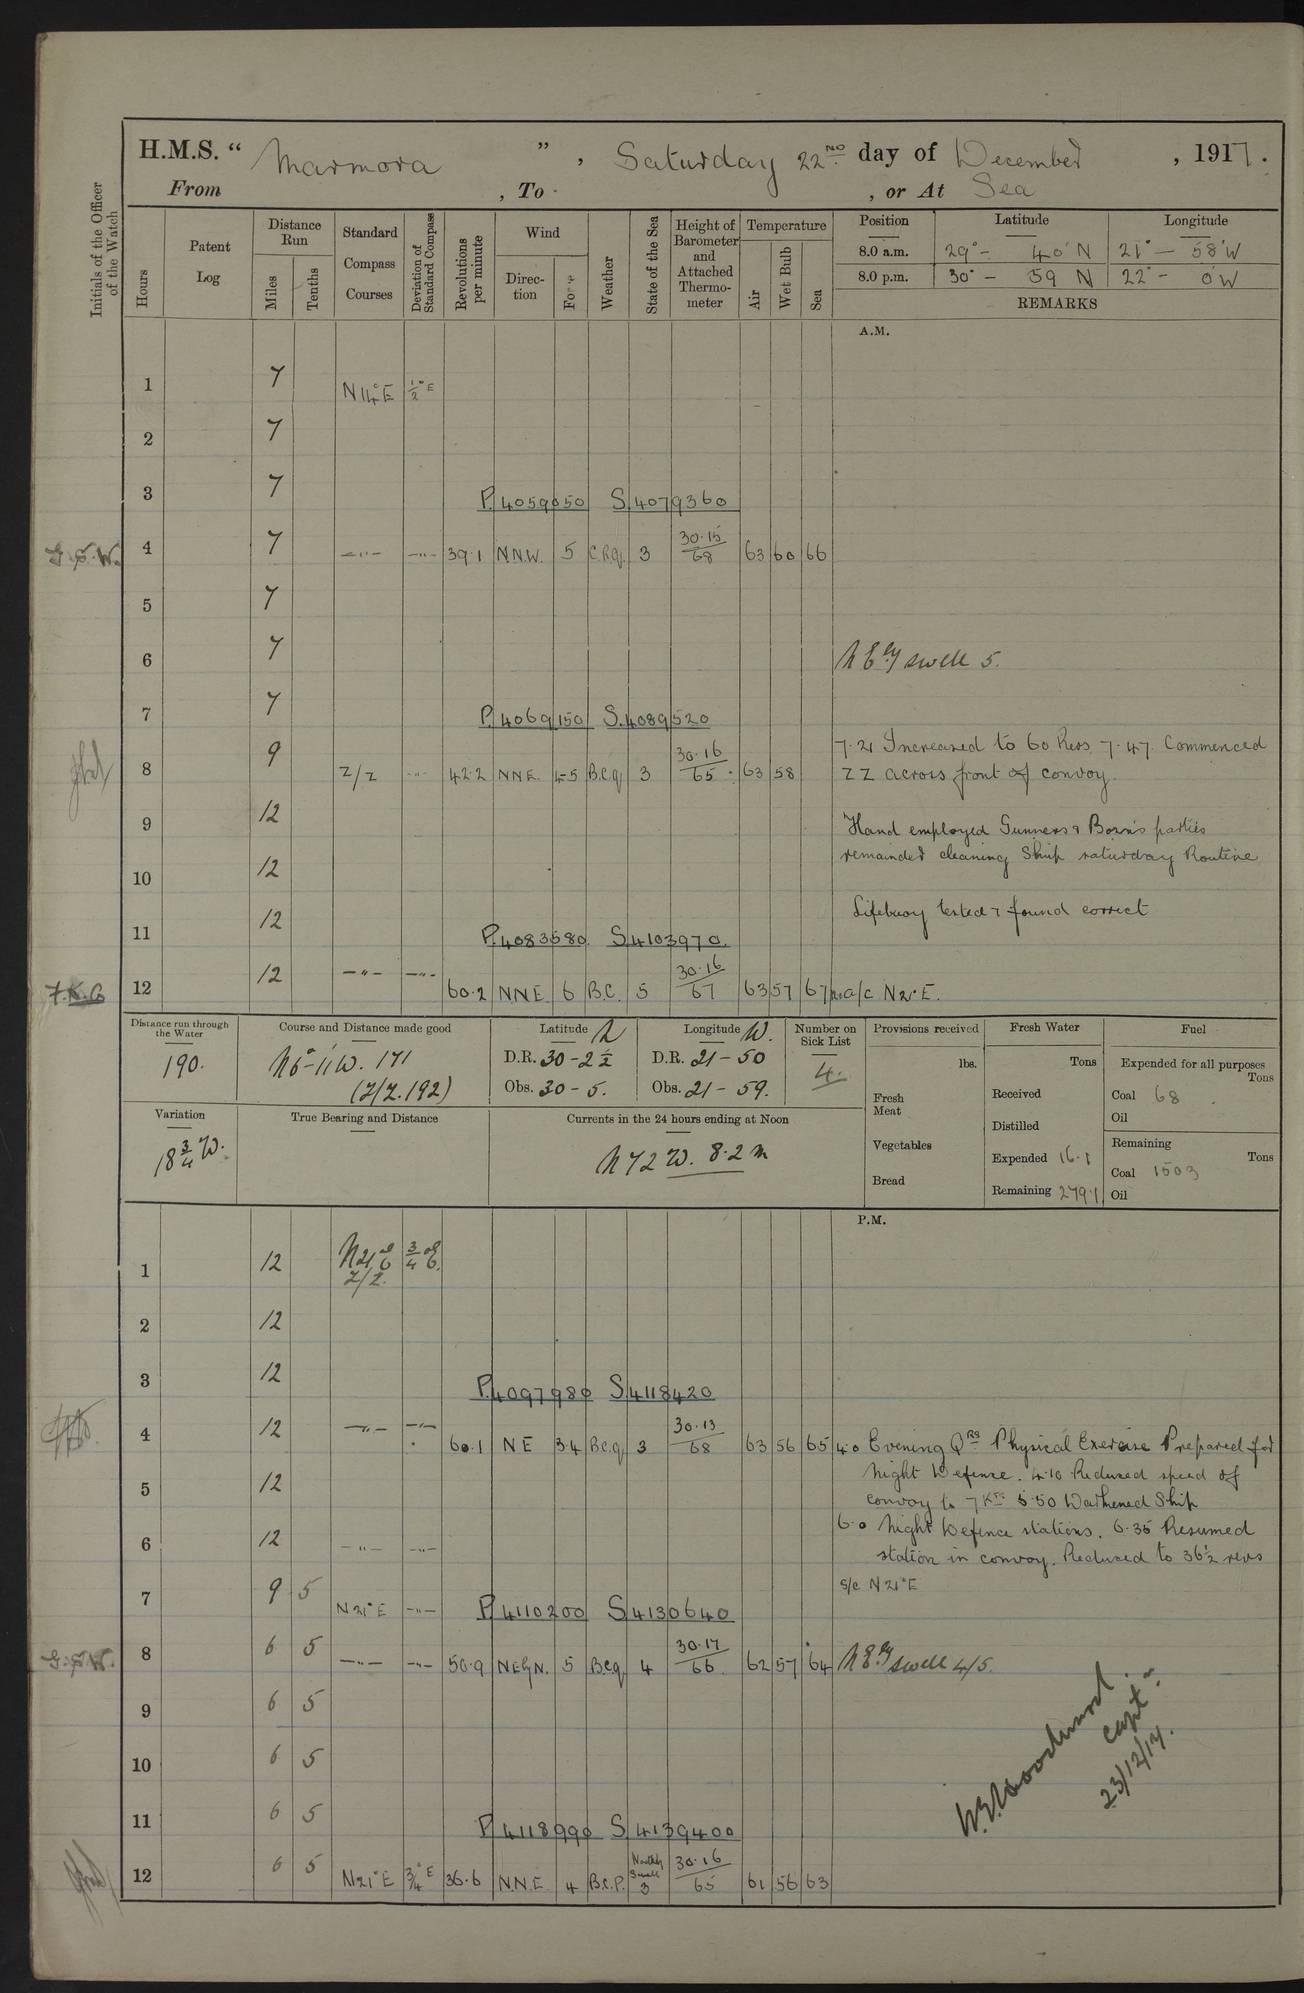 H.M.S. “ Marmora ” , Saturday 22ND day of December , 1917.
From , To , or At Sea
Initials of the Officer of the Watch
Hours
Patent Log
Distance Run
Miles
Tenths
Standard Compass Courses
Deviation of Standard Compass
Revolutions per minute
Wind
Direc-tion
Force
Weather
State of the Sea
Height of Barometer and Attached Thermo-meter
Temperature
Air
Wet Bulb
Sea
Position Latitude Longitude
8.0 a.m. 29° - 40' N 21° - 58' W
8.0 p.m. 30° - 59 N 22° - 0' W
REMARKS
A.M.
1 7 N 14° E ½° E
2 7
3 7
P. 4059050 S. 4079360
G.S.W. 4 7 —"— —"— 39.1 N.N.W. 5 C.P.q. 3 30.15/68 63 60 66
5 7
6 7 N E'ly swell 5.
7 7
P. 4069150 S. 4089520
7.21 Increased to 60 Revs 7.47 Commenced
8 9 Z/Z —"— 42.2 NNE. 4-5 B.C.q. 3 30.16/65 63 58 ZZ across front of convoy.
9 12 Hand employed Gunners & Bosn's parties
remainder cleaning Ship saturday Routine
10 12
Lifebuoy tested & found correct
11 12
P. 4083580 S. 4103970.
12 12 —"— —"— 60.2 NNE 6 B.C. 5 30.16/67 63 57 67 a/c N 21° E.
Distance run through the Water
190.
Course and Distance made good
N 6°-11' W. 171
(Z/Z. 192)
Latitude N
D.R. 30 - 2½
Obs. 30 - 5.
Longitude W.
D.R. 21 - 50
Obs. 21 - 59.
Number on Sick List
4.
Provisions received
lbs.
Fresh Meat
Vegetables
Bread
Fresh Water
Tons
Received
Distilled
Expended 16.1
Remaining 279.1
Fuel
Expended for all purposes
Tons
Coal 68
Oil
Remaining
Tons
Coal 1503
Oil
Variation
18¾ W.
True Bearing and Distance
Currents in the 24 hours ending at Noon
N 72 W. 8.2 m
P.M.
1 12 N 21° E Z/Z. ¾° E.
2 12
3 12
P. 4097980 S. 4118420
4 12 —"— —"— 60.1 NE 3.4 B.c.q. 3 30.13/68 63 56 65 4.0 Evening Qrs Physical Exercise Prepared for
Night Defence. 4.10 Reduced speed of
5 12 convoy to 7 Kts 5.50 Darkened Ship
6.0 Night Defence stations. 6.35 Resumed
6 12 —"— —"— station in convoy. Reduced to 36½ revs
s/c N 21° E
7 9 5 N 21° E —"—
P. 4110200 S 4130640
G.S.W. 8 6 5 —"— —"— 50.9 NEbyN. 5 B.c.q 4 30.17/66 62 57 64 N E'ly swell 4/5.
9 6 5
10 6 5
11 6 5
P. 4118990 S 4139400
12 6 5 N 21° E ¾° E 36.6 N.N.E 4 B.c.P. Northly Swell 3 30.16/65 61 56 63
Woodward
Capt:
23/12/17.